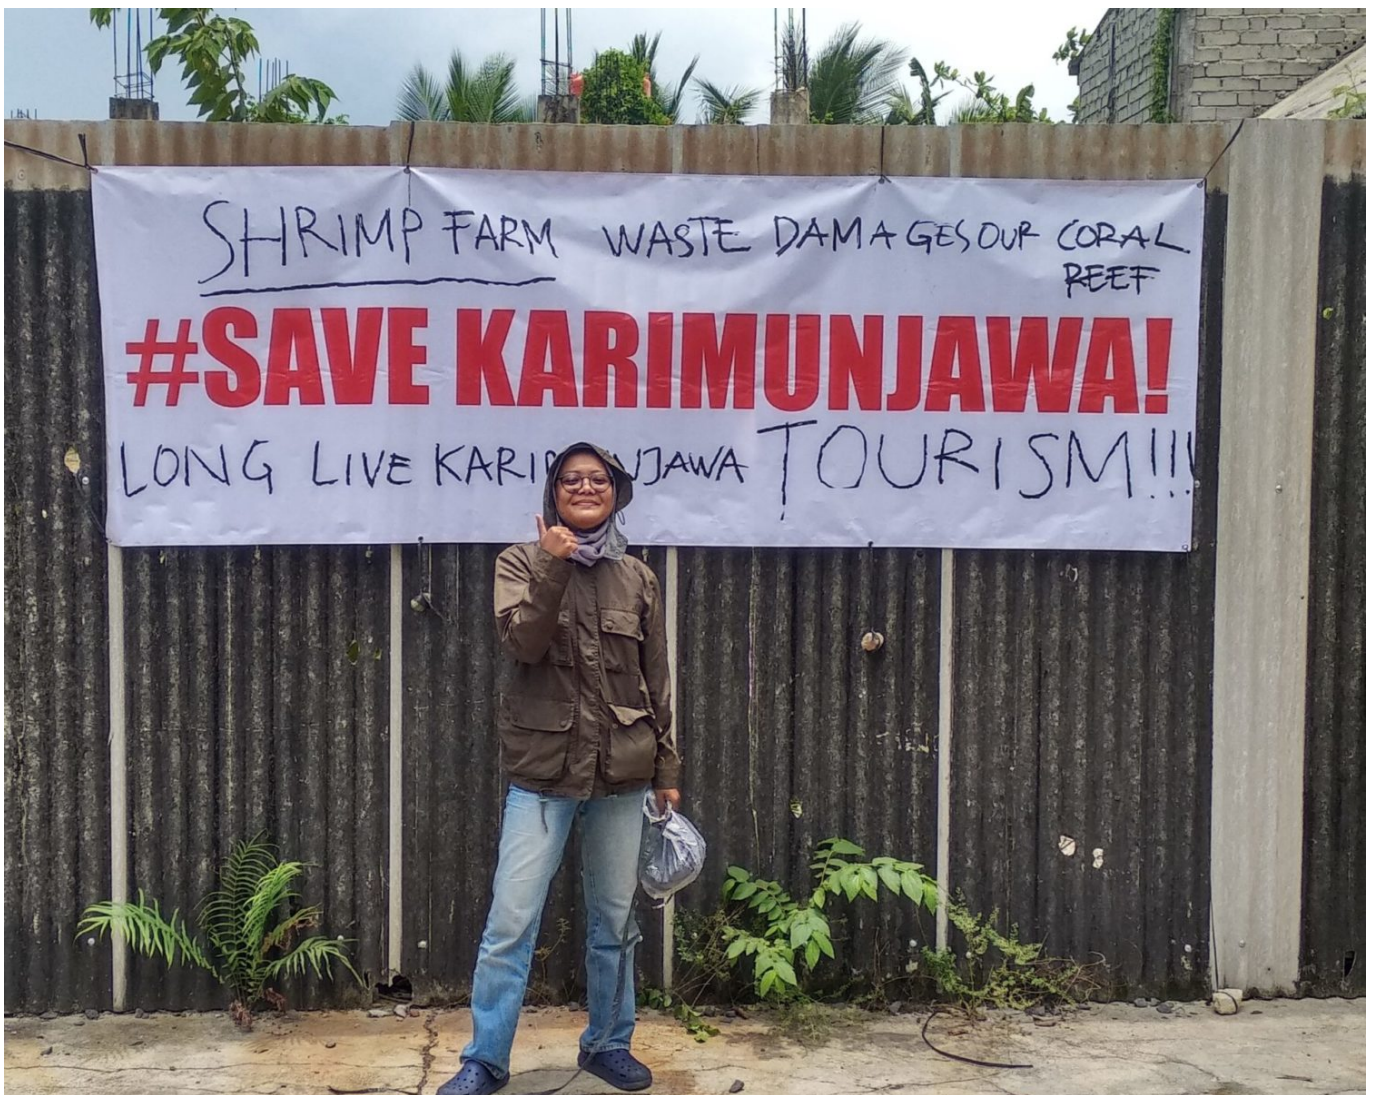 SHRIMP FARM WASTE DAMAGES OUR CORAL
REEF
#SAVE KARIMUNJAWA!
LONG LIVE KARIMUNJAWA TOURISM!!!